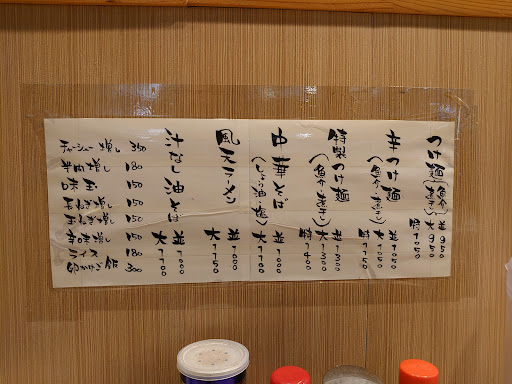 つけ麺(魚介、煮干し)
並 950
大 950
特 1050
辛つけ麺
(魚介、煮干し)
並 1050
大 1050
特 1150
特製つけ麺
(魚介、煮干し)
並 1300
大 1300
特 1400
中華そば
(しょう油、塩)
並 1000
大 1100
風天ラーメン
並 1000
大 1150
汁なし油そば
並 1000
大 1100
チャーシュー増し 350
半肉増し 180
味玉 150
玉ねぎ増し 150
辛味増し 150
ライス 180
卵かけご飯 300